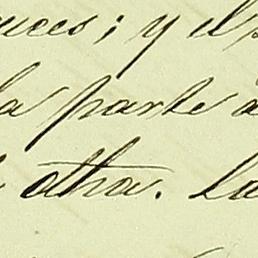 uces; y el
la parte a
otha. la